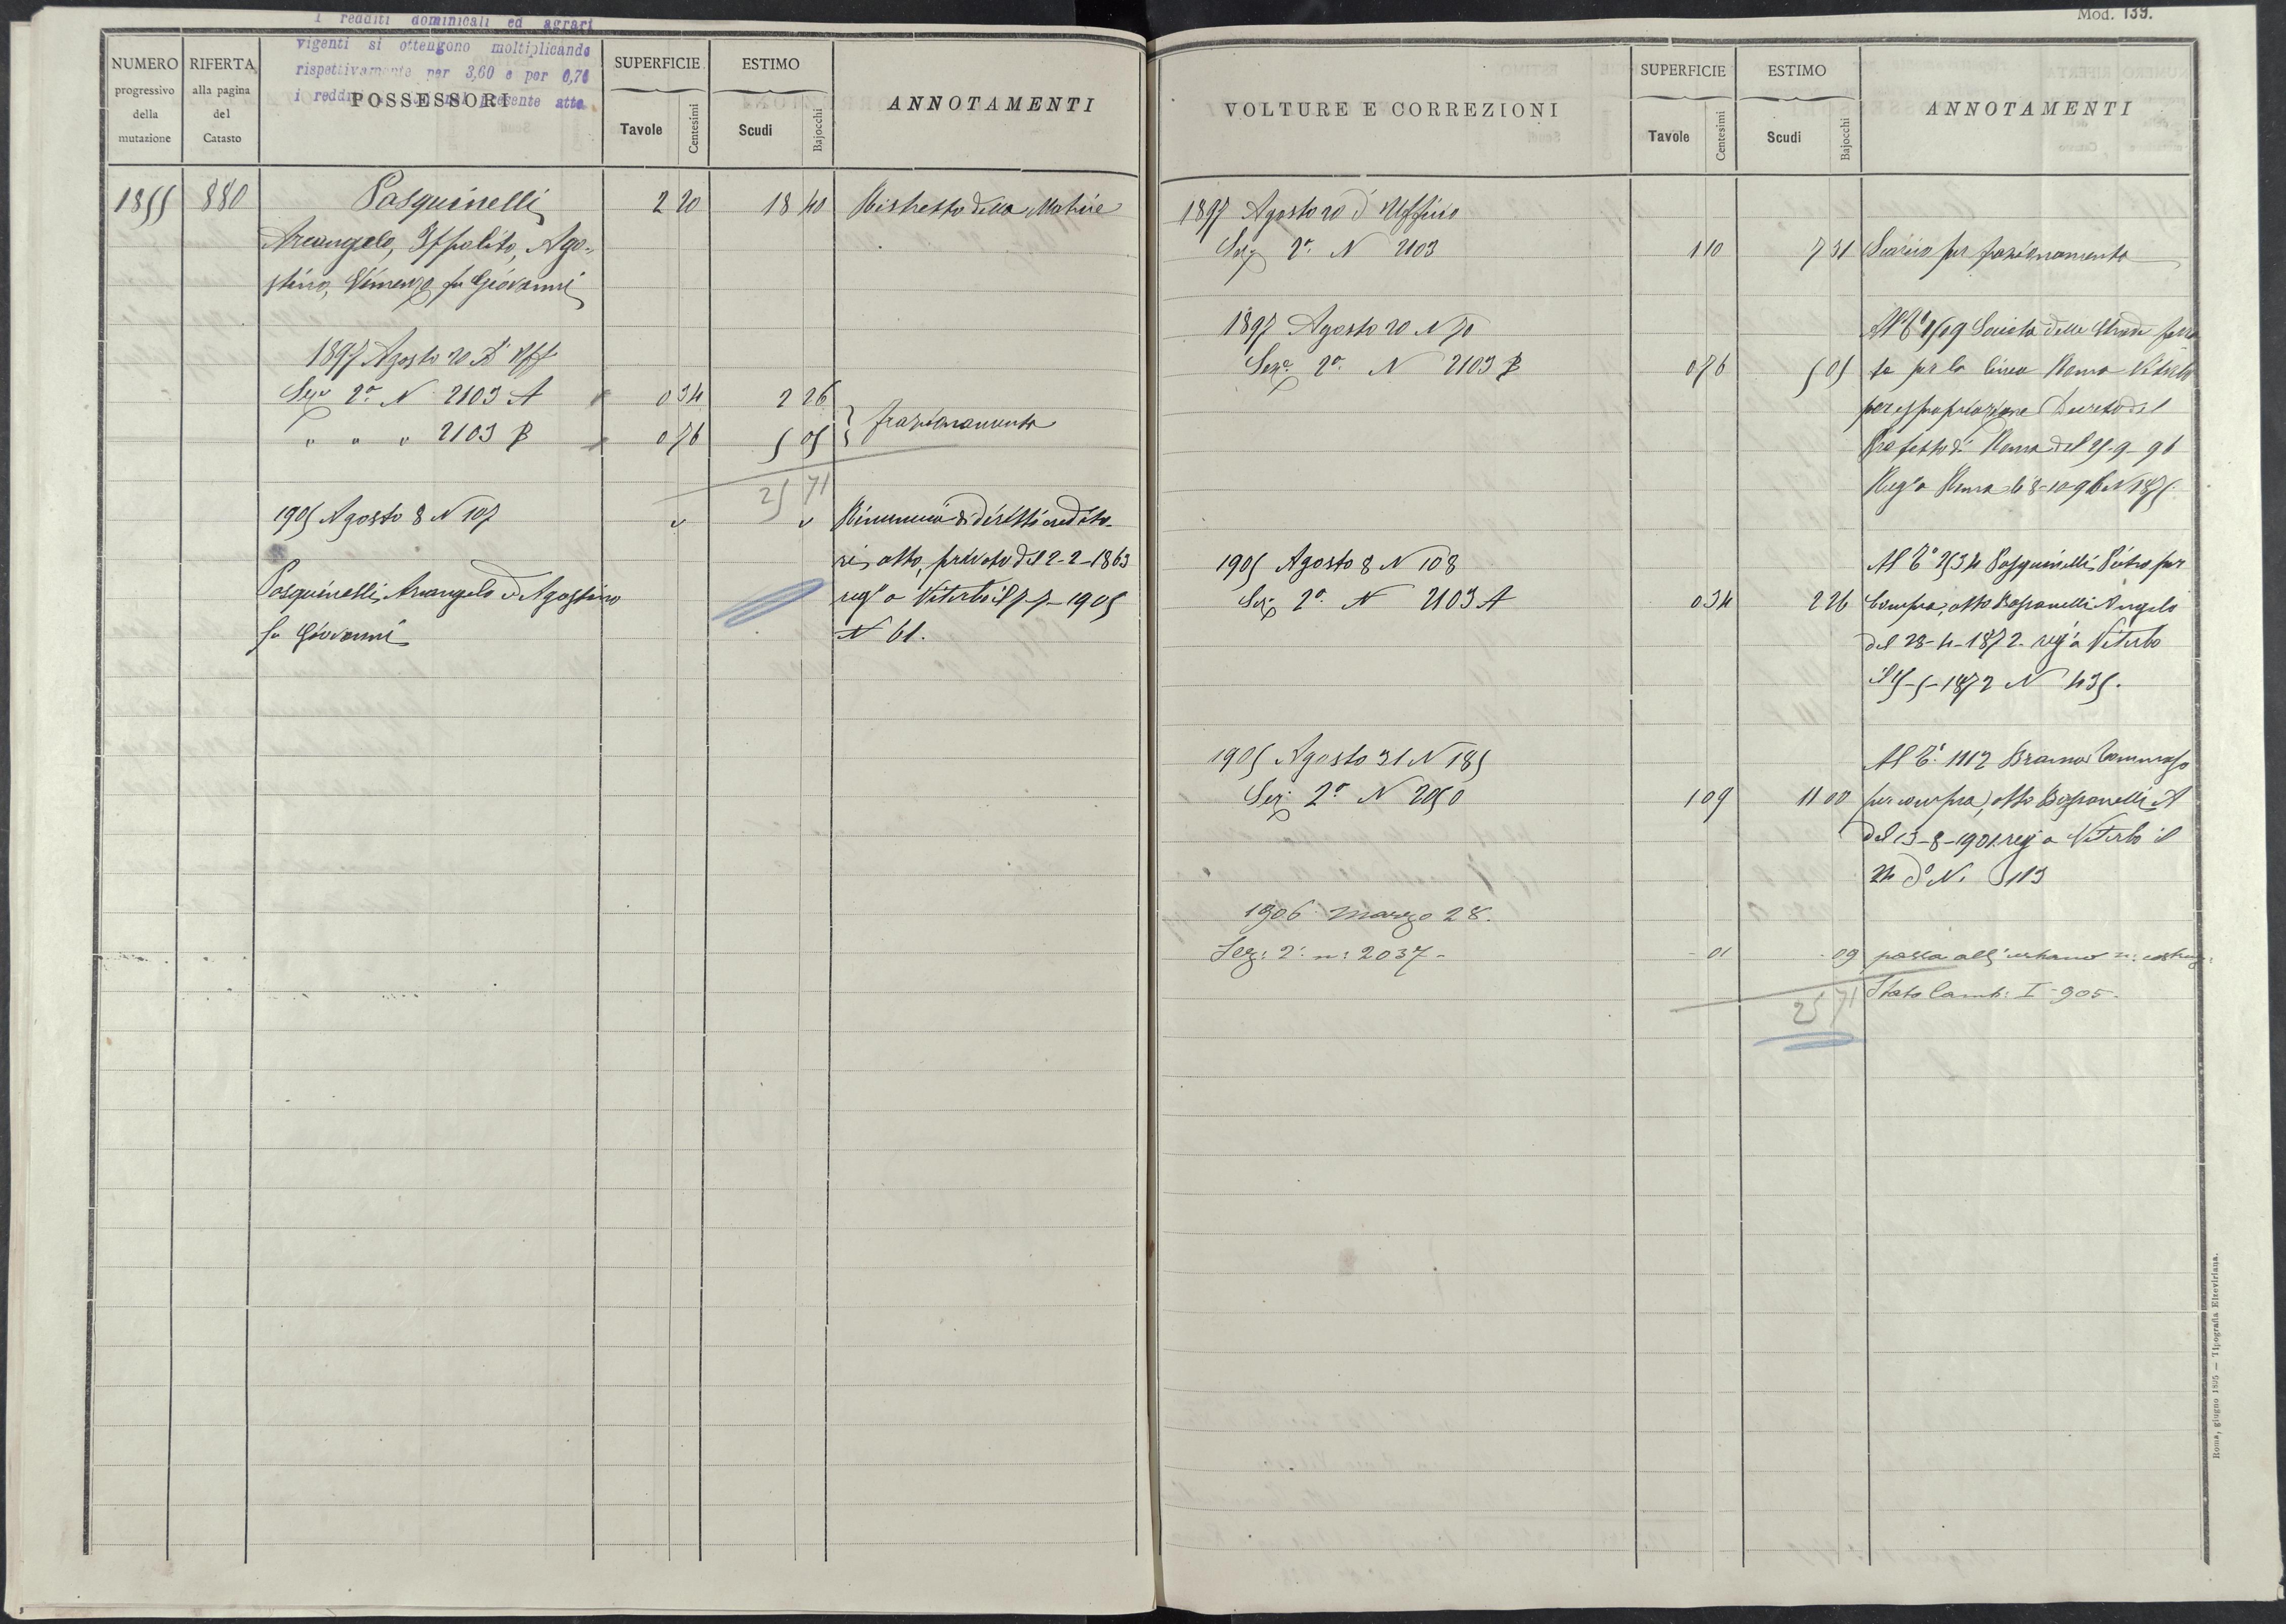 I redditi dominicali ed agrari
vigenti si ottengono moltiplicando
rispettivamente per 3,60 e per 0,70
i redditi presente atto
NUMERO progressivo della mutazione
RIFERTA alla pagina del Catasto
POSSESSORI
SUPERFICIE
Tavole
Centesimi
ESTIMO
Scudi
Bajocchi
ANNOTAMENTI
1855 880 Pasquinelli 2 20 18 40 Ristretto della Matrice
Arcangelo, Ippolito, Ago-
stino, Vincenzo fu Giovanni
1897 Agosto 20 d'Uff
Sez 2a N 2103 A 0 34 2 26
" " " 2103 B 0 76 5 05 frazionamento
25 71
1905 Agosto 8 N 107 " " Rinuncia di diritti eredita-
ri, atto privato del 2-2-1863
Pasquinelli Arcangelo ed Agostino reg° a Viterbo il 7-7-1905
fu Giovanni N 61.
Mod. 139.
VOLTURE E CORREZIONI
SUPERFICIE
Tavole
Centesimi
ESTIMO
Scudi
Bajocchi
ANNOTAMENTI
1897 Agosto 20 d'Ufficio
Sez 2a N 2103 1 10 7 31 Scarico per frazionamento
1897 Agosto 20 N 70 Società delle Strade ferra
Seze 2a N 2103 B 0 76 5 05 te per la linea Roma Viterbo
per espropriazione Decreto del
Prefetto di Roma del
Reg° a Roma li 8-10-96 N 1875
1905 Agosto 8 N 108 Al C° 2534 Pasquinelli Pietro per
Sez 2a N 2103 A 0 34 2 26 Compra, atto Angelo
del 28-4-1872 reg° a Viterbo
il -5-1872 N 435.
1905 Agosto 31 N 185 Al C° 1112 Tommaso
Sez 2a N 2050 1 09 11 00 per compra, atto A
del 13-8-1901 reg a Viterbo il
24 d° N. 113
1906 Marzo 28.
Sez: 2a n: 2037 - 01 - 09 passa all'urbano
25 71 Stato Camb: I-905-
Roma, giugno 1895 — Tipografia Elzeviriana.